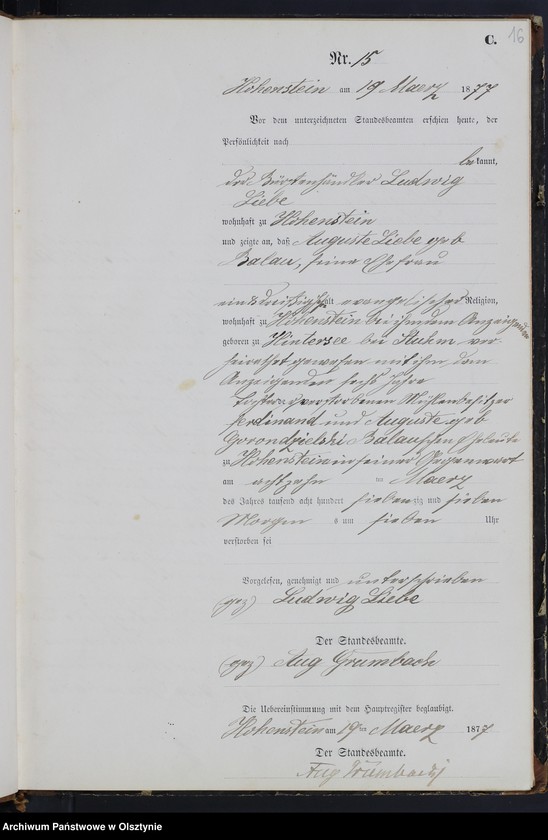 C. 16
Nr. 15
Hohenstein am 19 Maerz 1877
Vor dem unterzeichneten Standesbeamten erschien heute, der
Persönlichkeit nach
bekannt,
der Bürstenhändler Ludwig
Liebe
wohnhaft zu Hohenstein
und zeigte an, daß Auguste Liebe geb
Balau, seine Ehefrau
ein und dreißig Jahr alt evangelischer Religion,
wohnhaft zu Hohenstein bei ihm dem Anzeigenden
geboren zu Hintersee bei Stuhm, ver-
heirathet gewesen mit ihm, dem
Anzeigenden sechs Jahre
Tochter der verstorbenen Mühlenbesitzer
Ferdinand und Auguste geb
Balauschen Eheleute
zu Hohenstein in seiner Gegenwart
am achtzehn ten Maerz
des Jahres tausend acht hundert siebenzig und sieben
Morgens um sieben Uhr
verstorben sei
Vorgelesen, genehmigt und unterschrieben
(gez) Ludwig Liebe
Der Standesbeamte.
(gez) Aug Grumbach
Die Uebereinstimmung mit dem Hauptregister beglaubigt.
Hohenstein am 19ten Maerz 1877
Der Standesbeamte.
Aug Grumbach
Archiwum Państwowe w Olsztynie